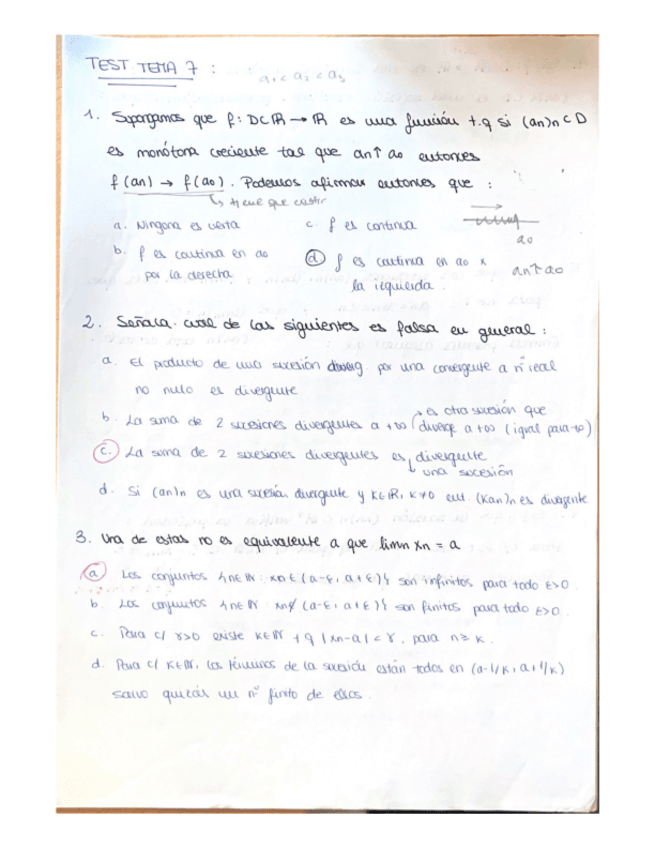 TEST TEMA 7 :
a₁ < a₂ < a₃
1. Supongamos que f: D⊂ℝ → ℝ es una función t.q si (an)n ⊂ D
es monótona creciente tal que an↑ a₀ entonces
f(an) → f(a₀). Podemos afirmar entonces que :
↳ tiene que existir
a. Ninguna es cierta
c. f es continua
a₀
b. f es continua en a₀
por la derecha
d f es continua en a₀ x
la izquierda.
an↑a₀
2. Señala cual de las siguientes es falsa en general :
a. El producto de una sucesión diverg. por una convergente a nº real
no nulo es divergente
es otra sucesión que
b. La suma de 2 sucesiones divergentes a +∞ diverge a +∞ (igual para -∞)
c. La suma de 2 sucesiones divergentes es divergente
↳ una sucesión
d. Si (an)n es una sucesión divergente y K∈ℝ, K≠0 ent. (Kan)n es divergente
3. Una de estas no es equivalente a que limn xn = a
a Los conjuntos {n∈ℕ : xn∈(a-ε, a+ε)} son infinitos para todo ε>0.
b. Los conjuntos {n∈ℕ : xn∉(a-ε, a+ε)} son finitos para todo ε>0.
c. Para c/ r>0 existe K∈ℕ t q |xn-a| < r, para n≥K.
d. Para c/ K∈ℕ, los términos de la sucesión están todos en (a-1/K, a+1/K)
salvo quizás un nº finito de ellos.